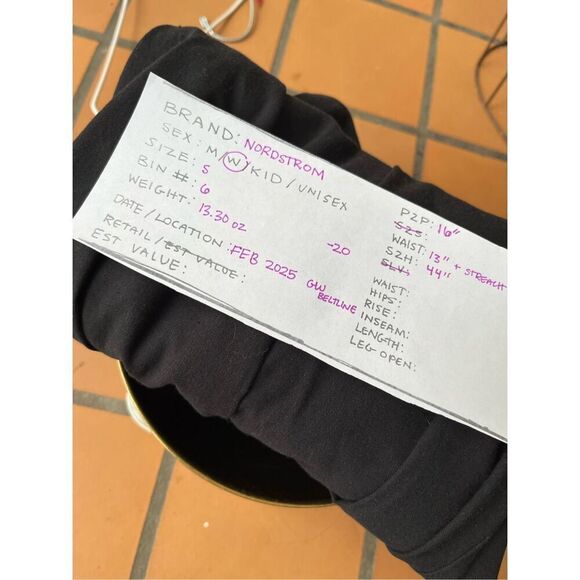 BRAND: NORDSTROM
SEX: M/W/KID/UNISEX
SIZE: S
BIN #: 6
WEIGHT: 13.30 oz
-20
DATE/LOCATION: FEB 2025 GW BELTLINE
RETAIL/EST VALUE:
EST VALUE:
P2P: 16"
S2S:
WAIST: 13" + STREACH
S2H: 44"
SLV:
WAIST:
HIPS:
RISE:
INSEAM:
LENGTH:
LEG OPEN: